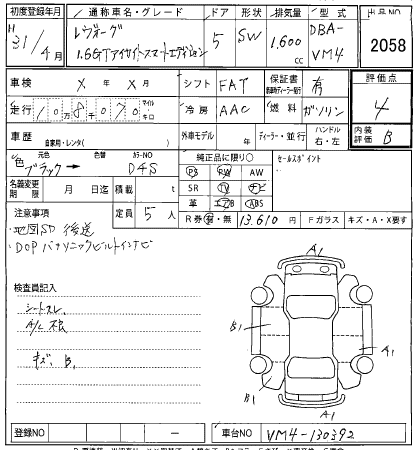 初度登録年月 通称車名・グレード ドア 形状 排気量 型式 出品NO
H 31/4月 レヴォーグ 1.6GTアイサイトスマートエディション 5 SW 1.600cc DBA-VM4 2058
車検 X年X月 シフト FAT 保証書 有 評価点
走行 10万8千070 マイル キロ 冷房 AAC 燃料 ガソリン 4
車歴 自家用・レンタ( ) 外車モデル 年 ディーラー・並行 ハンドル 右・左 内装評価 B
色 元色 ブラック→ 色替 カラーNO D4S 純正品に限り○ セールスポイント
名義変更期限 月 日迄 積載 t PS PW AW
SR TV ナビ
革 エアB ABS
注意事項 定員 5人 R券 有・無 13.610円 Fガラス キズ・A・X要す
・地図SD 後送
・DOP パナソニックビルトインナビ
検査員記入
シートスレ
A/C
キズ、B、
A1
B1 A1
B1
A1
登録NO ー 車台NO VM4-130392